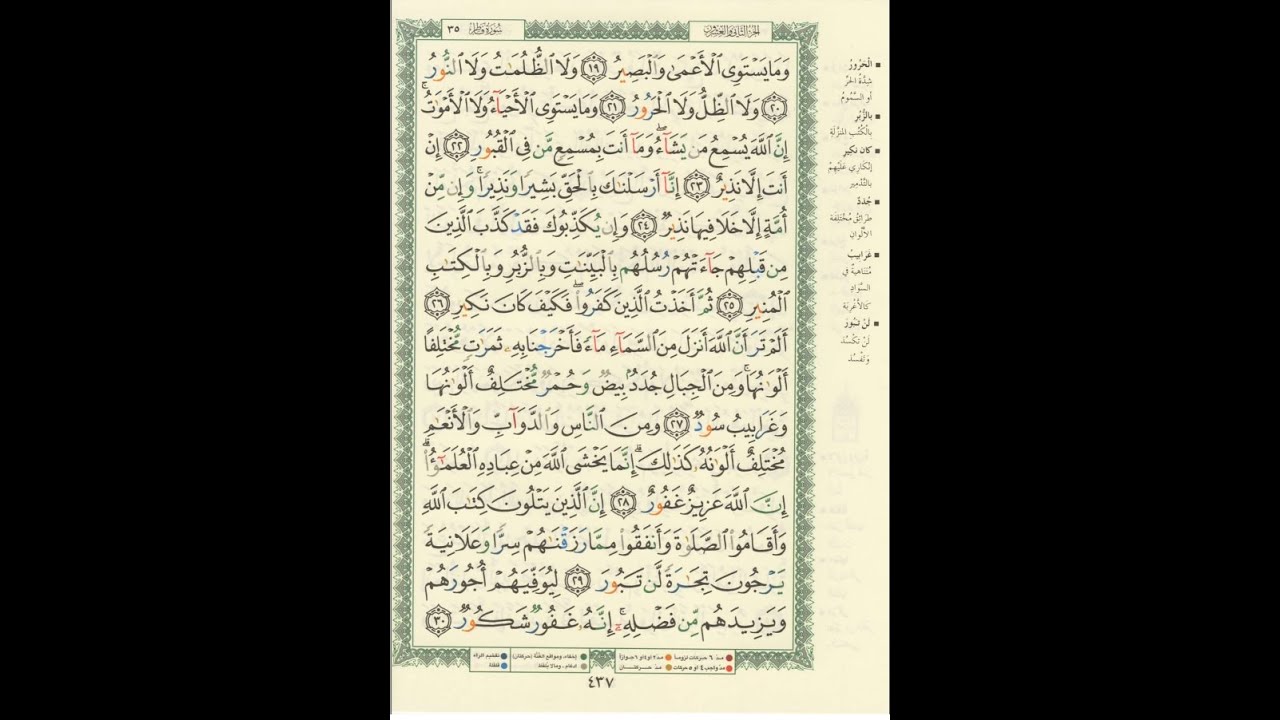 الجزء الثاني والعشرون
سورة فاطر ٣٥
وَمَا يَسْتَوِى ٱلْأَعْمَىٰ وَٱلْبَصِيرُ ١٩ وَلَا ٱلظُّلُمَـٰتُ وَلَا ٱلنُّورُ
٢٠ وَلَا ٱلظِّلُّ وَلَا ٱلْحَرُورُ ٢١ وَمَا يَسْتَوِى ٱلْأَحْيَآءُ وَلَا ٱلْأَمْوَٰتُ ۚ
إِنَّ ٱللَّهَ يُسْمِعُ مَن يَشَآءُ ۖ وَمَآ أَنتَ بِمُسْمِعٍ مَّن فِى ٱلْقُبُورِ ٢٢ إِنْ
أَنتَ إِلَّا نَذِيرٌ ٢٣ إِنَّآ أَرْسَلْنَـٰكَ بِٱلْحَقِّ بَشِيرًا وَنَذِيرًا ۚ وَإِن مِّنْ
أُمَّةٍ إِلَّا خَلَا فِيهَا نَذِيرٌ ٢٤ وَإِن يُكَذِّبُوكَ فَقَدْ كَذَّبَ ٱلَّذِينَ
مِن قَبْلِهِمْ جَآءَتْهُمْ رُسُلُهُم بِٱلْبَيِّنَـٰتِ وَبِٱلزُّبُرِ وَبِٱلْكِتَـٰبِ
ٱلْمُنِيرِ ٢٥ ثُمَّ أَخَذْتُ ٱلَّذِينَ كَفَرُوا۟ ۖ فَكَيْفَ كَانَ نَكِيرِ ٢٦
أَلَمْ تَرَ أَنَّ ٱللَّهَ أَنزَلَ مِنَ ٱلسَّمَآءِ مَآءً فَأَخْرَجْنَا بِهِۦ ثَمَرَٰتٍ مُّخْتَلِفًا
أَلْوَٰنُهَا ۚ وَمِنَ ٱلْجِبَالِ جُدَدٌۢ بِيضٌ وَحُمْرٌ مُّخْتَلِفٌ أَلْوَٰنُهَا
وَغَرَابِيبُ سُودٌ ٢٧ وَمِنَ ٱلنَّاسِ وَٱلدَّوَآبِّ وَٱلْأَنْعَـٰمِ
مُخْتَلِفٌ أَلْوَٰنُهُۥ كَذَٰلِكَ ۗ إِنَّمَا يَخْشَى ٱللَّهَ مِنْ عِبَادِهِ ٱلْعُلَمَـٰٓؤُا۟ ۗ
إِنَّ ٱللَّهَ عَزِيزٌ غَفُورٌ ٢٨ إِنَّ ٱلَّذِينَ يَتْلُونَ كِتَـٰبَ ٱللَّهِ
وَأَقَامُوا۟ ٱلصَّلَوٰةَ وَأَنفَقُوا۟ مِمَّا رَزَقْنَـٰهُمْ سِرًّا وَعَلَانِيَةً
يَرْجُونَ تِجَـٰرَةً لَّن تَبُورَ ٢٩ لِيُوَفِّيَهُمْ أُجُورَهُمْ
وَيَزِيدَهُم مِّن فَضْلِهِۦٓ ۚ إِنَّهُۥ غَفُورٌ شَكُورٌ ٣٠
الْحَرُورُ
شِدَّةُ الحَرِّ
أو السَّمُومُ
بالزُّبُرِ
بالكُتُبِ المنزَّلَةِ
كان نكيرِ
إنكاري عَلَيْهِمْ
بالتَّدمِير
جُدَدٌ
طَرَائِقُ مُخْتَلِفَة
الألْوَانِ
غَرَابيبُ
مُتَنَاهِيَةٌ في
السَّوَادِ
كالأغْرِبَة
لَن تَبُورَ
لَنْ تَكْسُدَ
وتَفْسُدَ
مدّ ٦ حركات لزوماً
مدّ ٢ أو ٤ أو ٦ جوازاً
مدّ واجب ٤ أو ٥ حركات
مدّ حركتان
إخفاء، ومواقع الغُنَّة (حركتان)
ادغام، وما لا يُلفَظ
تفخيم الراء
قلقلة
٤٣٧